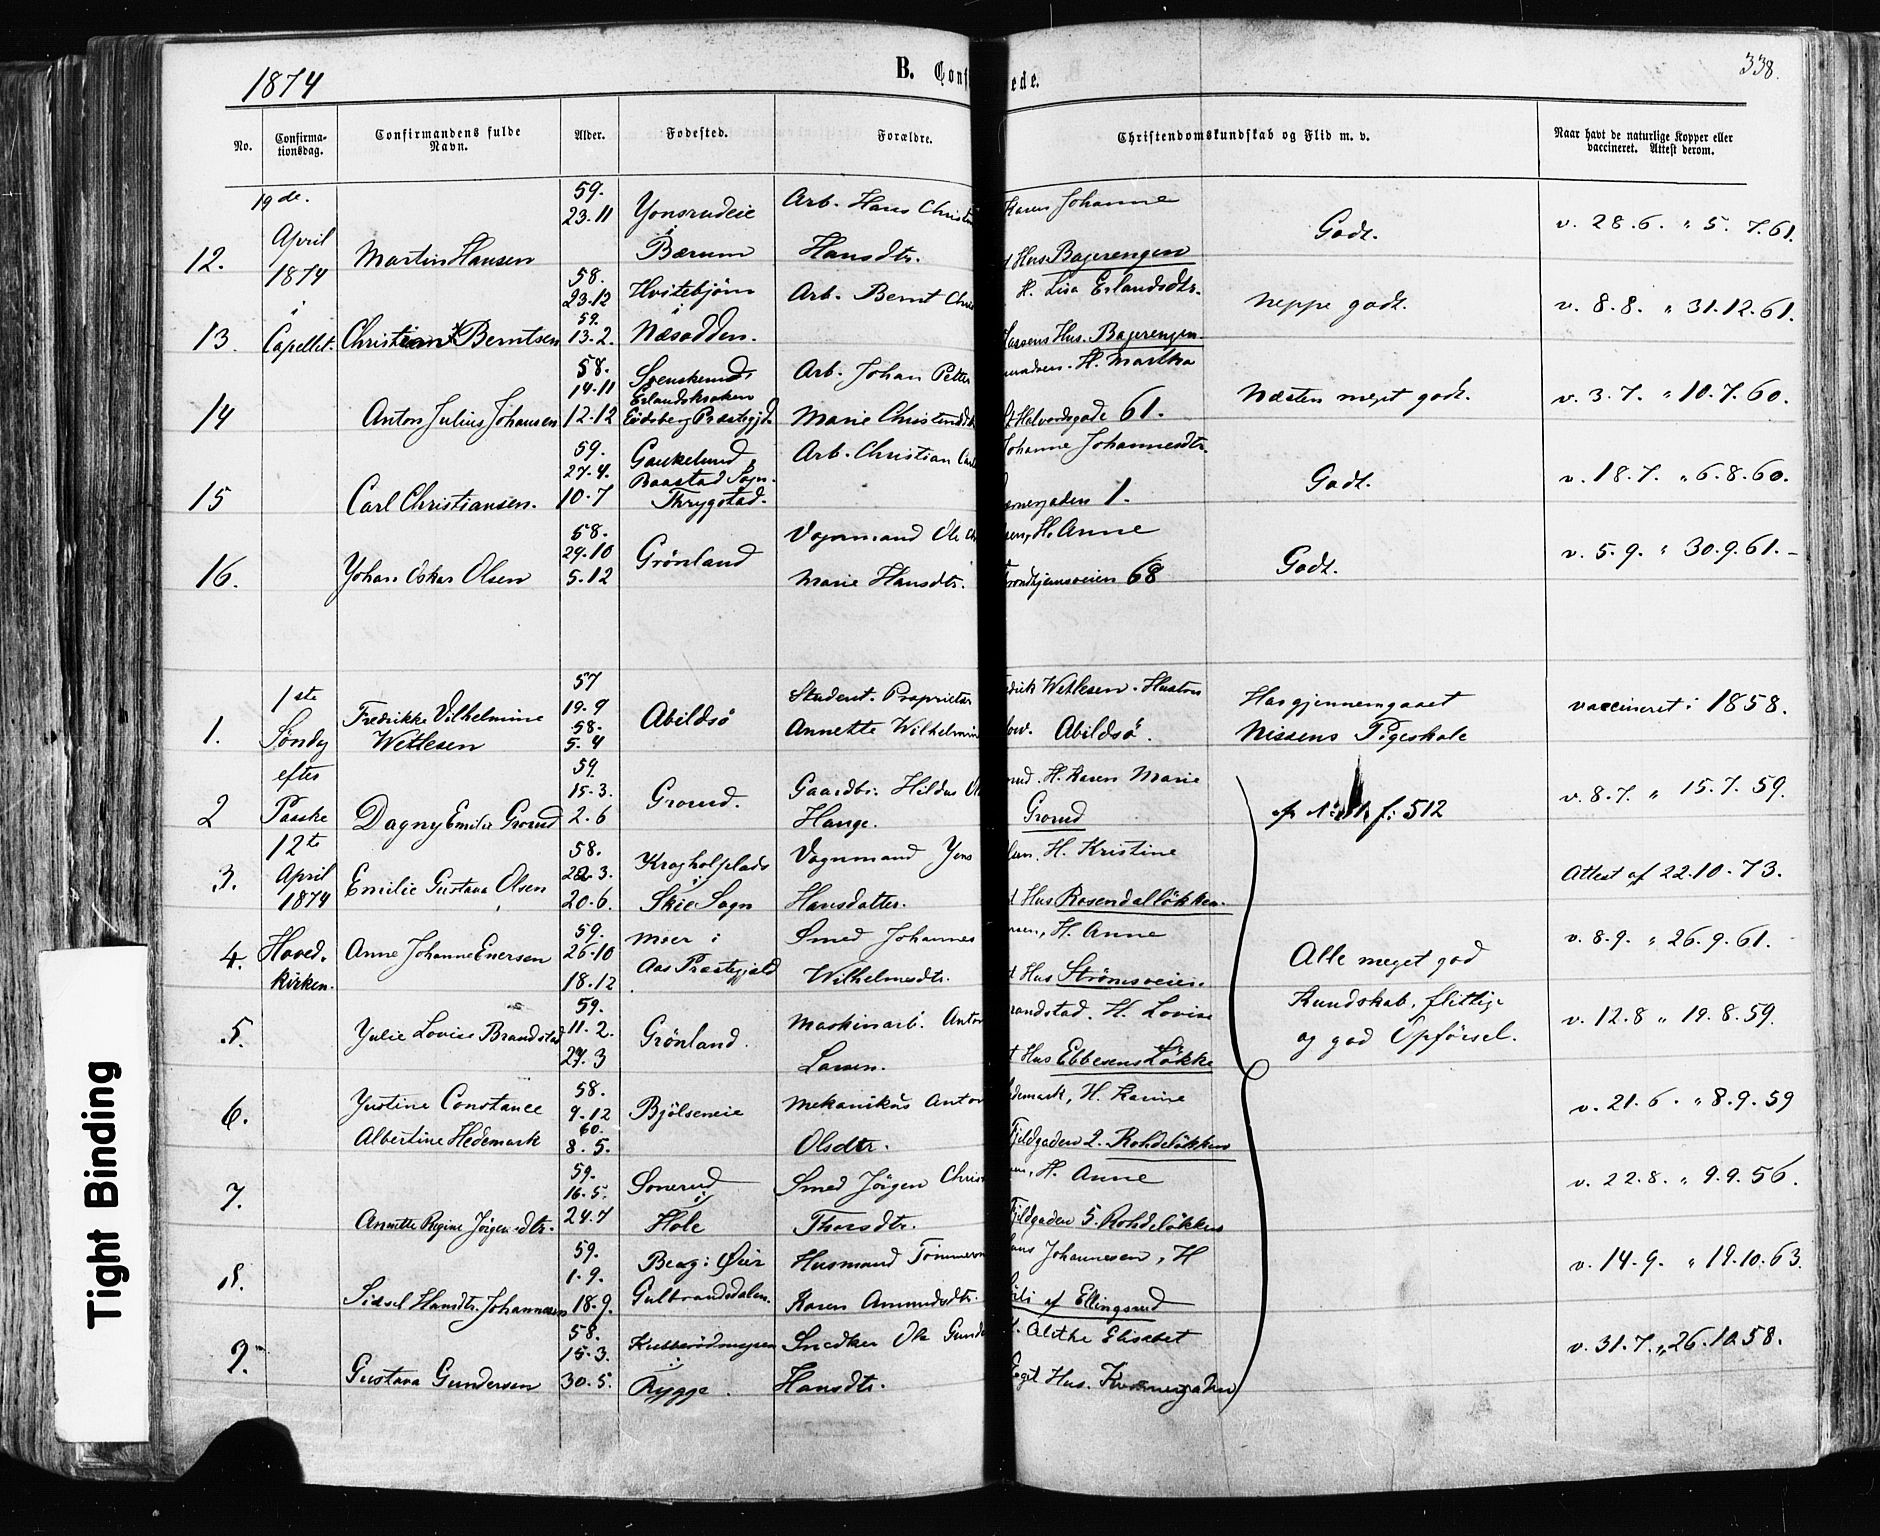 1874
B. Conf
ede.
338.
No.
Confirma-
tionsdag.
Confirmandens fulde
Navn.
Alder.
Fødested.
Forældre.
Christendomskundskab og Flid m. v.
Naar havt de naturlige Kopper eller
vaccineret. Attest derom.
12.
19de.
April
1874
i
Capellet.
Martin Hansen
59.
23.11
Bærum
Arb. Hans
Hansdtr.
Karen Johanne
Hus Bagerengen
Godt.
v. 28.6. " 5. 7.61.
13.
Christian Berntsen
58.
23.12
59.
13.2.
Hvitebjørn
i
Næsodden.
Arb. Bernt
H. Lisa Erlandsdtr.
Hus. Bagerengen
Neppe godt.
v. 8.8. " 31.12.61.
14
Anton Julius Johansen
58.
14.11
12.12
Eidsberg Præstegjd.
Arb. Johan Petter
Marie
H. Martha
Halvordsgade 61.
Næsten meget godt.
v. 3.7. " 10.7.60.
15
Carl Christiansen.
59.
27.4.
10.7
Baastad Sogn.
Thrygstad.
Arb. Christian
Johanne Johannesdtr.
1.
Godt.
v. 18.7. " 6.8.60.
16.
Johan Oskar Olsen
58.
29.10
5.12
Grønland
Vognmand Ole
Marie Hansdtr.
H. Anne
rondhjemsveien 68
Godt.
v. 5.9. " 30.9.61.
1.
1ste
Søndg
efter
Paaske
12te
April
1874
Hoved-
kirken.
Fredrikke Vilhelmine
Wetlesen
57
19.9
58.
5.4
Abildsø
Student. Proprietær
Annette Wilhelmin
edrik Wetlesen. Hustru
Abildsø.
Har gjennemgaaet
Nissens Pigeskole
vaccineret i 1858.
2
Dagny Emilie Grorud
59.
15.3.
2.6
Grorud.
Gaardbr.
Hauge.
rud. H. Karen Marie
Grorud
512
v. 8.7. " 15.7.59.
3.
Emilie Gustava Olsen
58.
22.3.
20.6.
i
Skie Sogn
Vognmand Jens
Hansdatter.
lsen. H. Kristine
Hus Rosendalløkken.
Attest af 22.10.73.
4.
Anne Johanne Enersen
59.
26.10
18.12
Moer i
Aas Præstegjæld
Smed Johannes
Wilhelmsdtr.
rsen, H. Anne
Hus Strømsveien.
Alle meget god
Kundskab, flittige
og god Opførsel.
v. 8.9. " 26.9.61.
5.
Julie Lovise Brandstad
59.
11.2.
27.3
Grønland.
Maskinarb. Anton
Larsen.
randstad. H. Lovise
t Hus Ebbesens Løkke
v. 12.8 " 19.8.59.
6.
Justine Constance
Albertine Hedemark
58.
9.12
60.
8.5.
Bjølseneie
Mekanikus Anton
Olsdtr.
demark, H. Karine
Fjeldgaden 2. Rohdeløkken
v. 21.6. " 8.9.59
7.
Annette Regine Jørgensdtr.
59.
16.5.
24.7
Sonerud
i
Hole
Smed Jørgen Christ
Thorsdtr.
en, H. Anne
Fjeldgaden 5. Rohdeløkken
v. 22.8. " 9.9.56.
8.
Sidsel Hansdtr. Johannesen
59.
1.9.
18.9.
Berg i Øier
Gulbrandsdalen.
Husmand Tømmerm
Karen Amundsdtr.
ans Johannesen, H
af Ellingsrud
v. 14.9. " 19.10.63.
9.
Gustava Gundersen
58.
15.3.
30.5.
i
Rygge.
Snedker Ole Gunde
Hansdtr.
Alethe Elisabet
Eget Hus.
v. 31.7. " 26.10.58.
Tight Binding